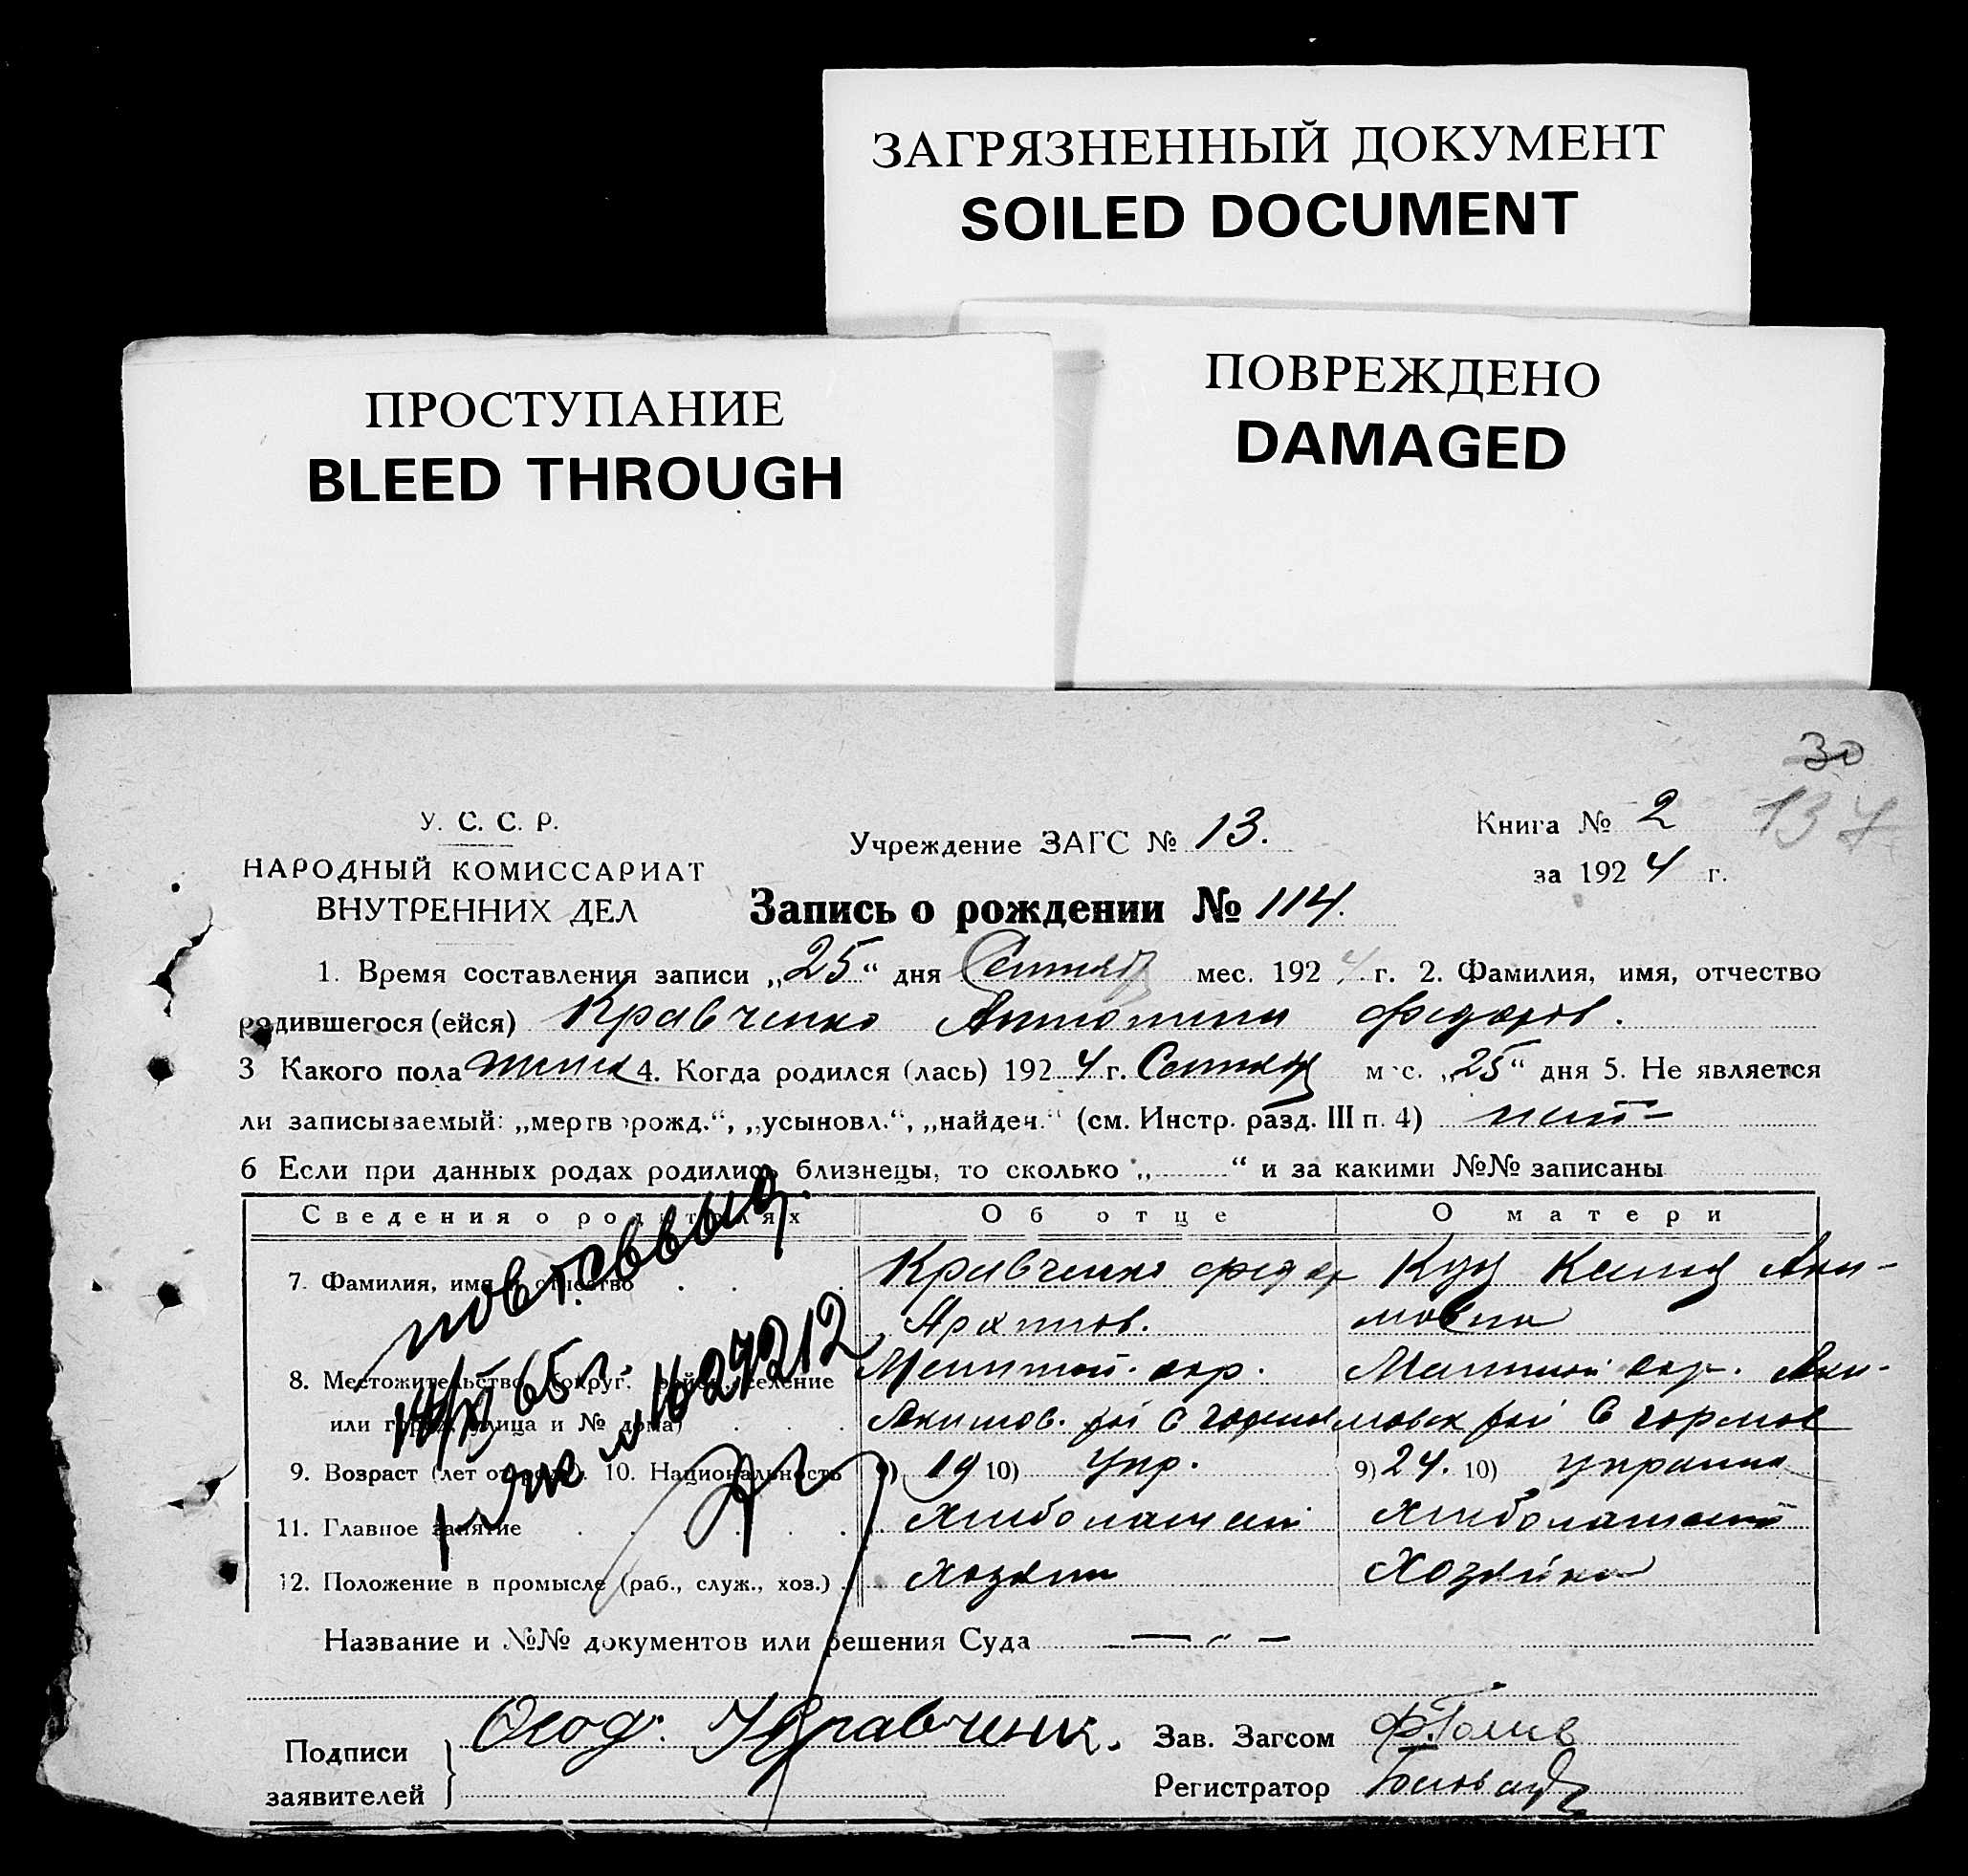 ЗАГРЯЗНЕННЫЙ ДОКУМЕНТ
SOILED DOCUMENT
ПРОСТУПАНИЕ
BLEED THROUGH
ПОВРЕЖДЕНО
DAMAGED
30
137
У. С. С. Р.
НАРОДНЫЙ КОМИССАРИАТ
ВНУТРЕННИХ ДЕЛ
Учреждение ЗАГС № 13.
Книга № 2
за 1924 г.
Запись о рождении № 114.
1. Время составления записи „25“ дня мес. 1924 г. 2. Фамилия, имя, отчество
родившегося (ейся) Кравченко Антонина Федоров.
3 Какого пола женск 4. Когда родился (лась) 1924 г. мес. „25“ дня 5. Не является
ли записываемый: „мертворожд.“, „усыновл.“, „найден.“ (см. Инстр. разд. III п. 4) нет
6 Если при данных родах родились близнецы, то сколько „ “ и за какими №№ записаны
Сведения о родителях Об отце О матери
7. Фамилия, имя и отчество Кравченко Федор
8. Местожительство (округ. район, селение
или город, улица и № дома) Акимов.
9. Возраст (лет от роду). 10. Национальность 9) 19 10) Укр. 9) 24. 10)
11. Главное занятие
12. Положение в промысле (раб., служ., хоз.) Хозяин Хозяйка
повт. выд.
№ 279212
Название и №№ документов или решения Суда — „ —
Подписи
заявителей
Кравченк.
Зав. Загсом
Регистратор